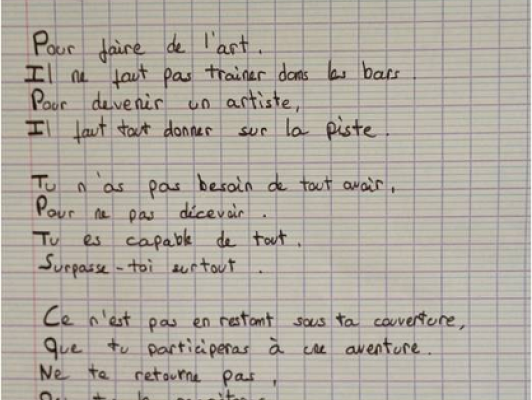 Pour faire de l'art.
Il ne faut pas trainer dans les bars.
Pour devenir un artiste,
Il faut tout donner sur la piste.
Tu n'as pas besoin de tout avoir,
Pour ne pas décevoir.
Tu es capable de tout.
Surpasse-toi surtout.
Ce n'est pas en restant sous ta couverture,
Que tu participeras à une aventure.
Ne te retourne pas,